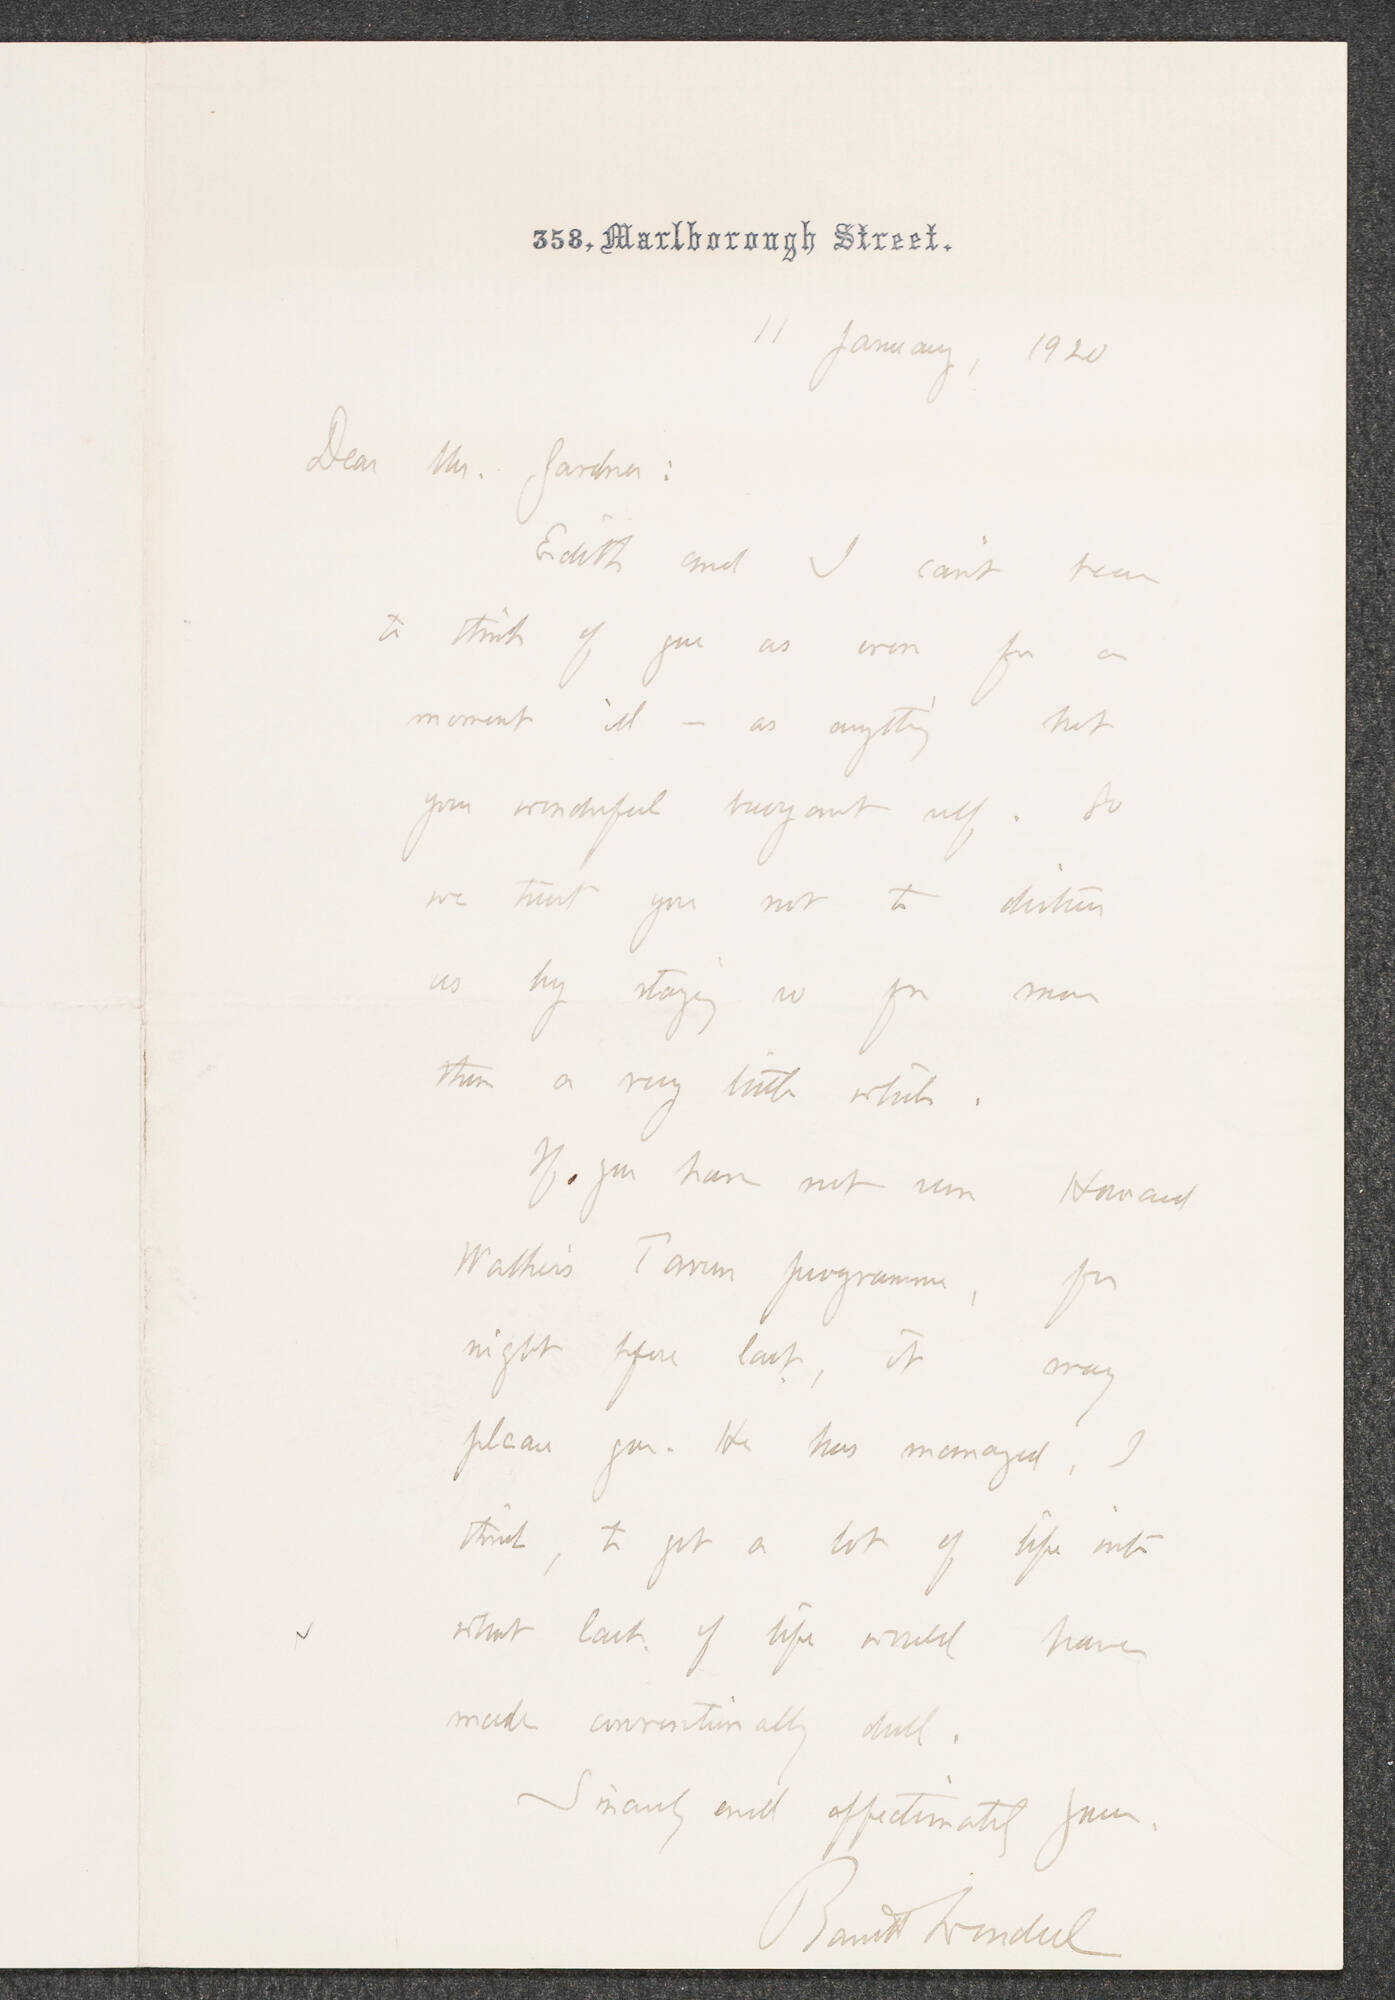 358, Marlborough Street.
11 January, 1920
Dear Mrs. Gardner:
Edith and I can't bear
to think of you as even for a
moment ill — as anything but
your wonderful buoyant self. So
we trust you not to distress
us by staying so for more
than a very little while.
If you have not seen Howard
Walker's Tavern programme, for
night before last, it may
please you. He has managed, I
think, to get a lot of life into
what lack of life would have
made conventionally dull.
Sincerely and affectionately yours,
Barrett Wendell